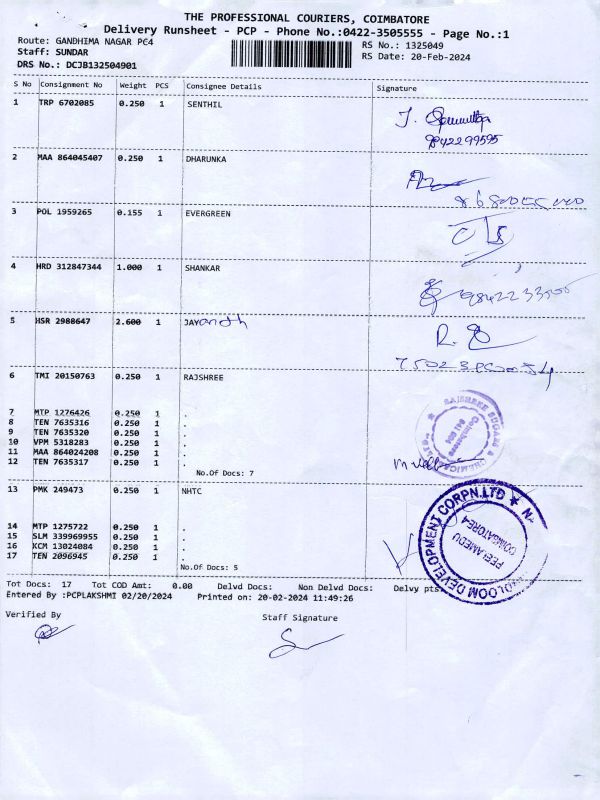 THE PROFESSIONAL COURIERS, COIMBATORE
Delivery Runsheet - PCP - Phone No.:0422-3505555 - Page No.:1
Route: GANDHIMA NAGAR PC4 RS No.: 1325049
Staff: SUNDAR RS Date: 20-Feb-2024
DRS No.: DCJB132504901
S No Consignment No Weight PCS Consignee Details Signature
1 TRP 6702085 0.250 1 SENTHIL
9842299595
2 MAA 864045407 0.250 1 DHARUNKA
3 POL 1959265 0.155 1 EVERGREEN
4 HRD 312847344 1.000 1 SHANKAR
5 HSR 2988647 2.600 1 JAYanth
6 TMI 20150763 0.250 1 RAJSHREE
RAJSHREE SUGARS & CHEMICALS LTD
Coimbatore
641 004
7 MTP 1276426 0.250 1 .
8 TEN 7635316 0.250 1 .
9 TEN 7635320 0.250 1 .
10 VPM 5318283 0.250 1 .
11 MAA 864024208 0.250 1 .
12 TEN 7635317 0.250 1 .
No.Of Docs: 7
13 PMK 249473 0.250 1 NHTC
DLOOM DEVELOPMENT CORPN.LTD ★ N
PEELAMEDU
COIMBATORE-4
14 MTP 1275722 0.250 1 .
15 SLM 339969955 0.250 1 .
16 KCM 13024084 0.250 1 .
17 TEN 2096945 0.250 1 .
No.Of Docs: 5
Tot Docs: 17 Tot COD Amt: 0.00 Delvd Docs: Non Delvd Docs: Delvy pts
Entered By :PCPLAKSHMI 02/20/2024 Printed on: 20-02-2024 11:49:26
Verified By Staff Signature